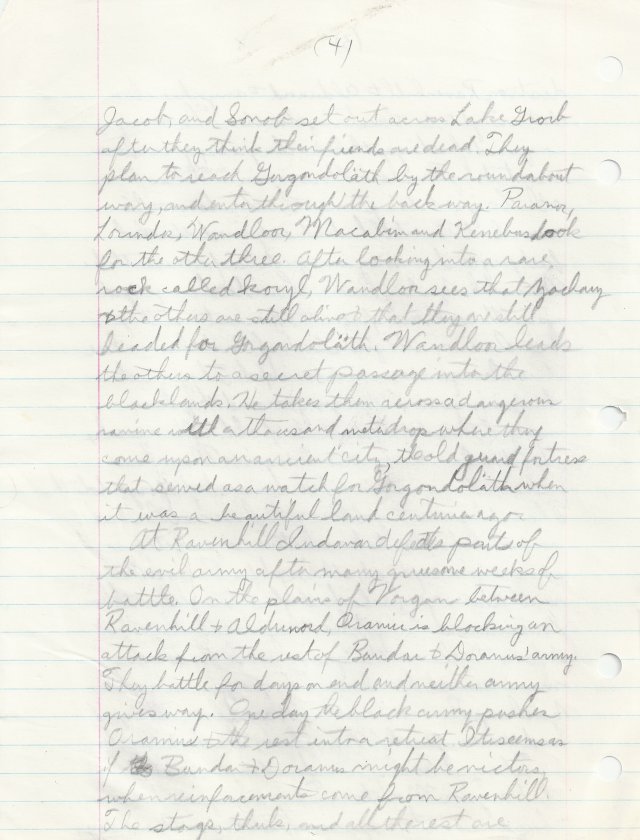 (4)
Jacob, and Sonob set out across Lake Grorb
after they think their friends are dead. They
plan to reach Gorgondolath by the roundabout
way, and enter through the back way. Paranor,
Lorinda, Wandloor, Macabim and Kenebus look
for the other three. After looking into a rare
rock called Ikoryl, Wandloor sees that Zachary
& the others are still alive & that they are still
headed for Gorgondolath. Wandloor leads
the others to a secret passage into the
blacklands. He takes them across a dangerous
ravine with a thousand meter drop where they
come upon an ancient city, the old guard fortress
that served as a watch for Gorgondolath when
it was a beautiful land centuries ago.
At Ravenhill Indavar defeats parts of
the evil army after many gruesome weeks of
battle. On the plains of Vorgan between
Ravenhill & Aldrinord, Oramis is blocking an
attack from the rest of Bundar & Doramus' army.
They battle for days on end and neither army
gives way. One day the black army pushes
Oramis & the rest into a retreat. It seems as
if Bundar & Doramus might be victors,
when reinforcements come from Ravenhill.
The stags, and all the rest are